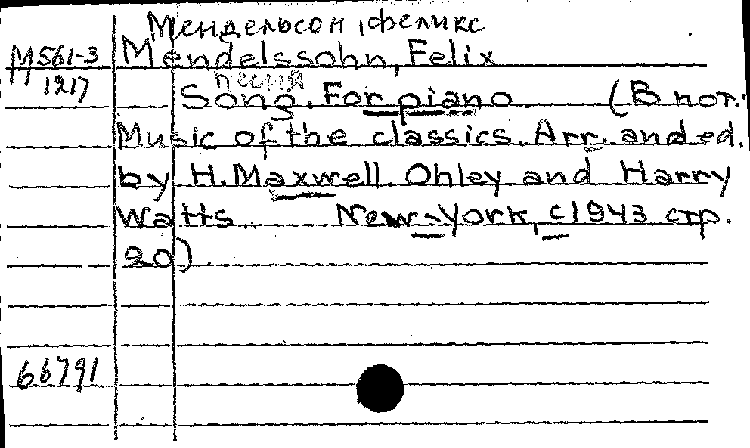 Мендельсон, феликс
М561-3 Mendelssohn, Felix
1217 песня
Song. For piano (В нот.:
Music of the classics. Arr. and ed.
by H. Maxwell Ohley and Harry
Watts New-York, c1943 стр.
20)
66791